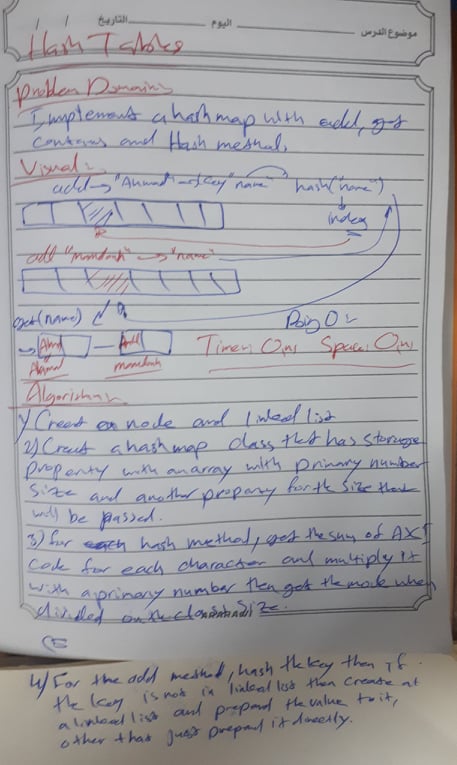 موضوع الدرس اليوم التاريخ
Hash Tables
Problem Domain:
Implement a hashmap with add, get
contains and Hash method.
Visual:
add → "Ahmad" → key "name" hash("name")
index
add "mamdouh" → "name"
get(name) Big O:
Ahmad mamdouh Time: O(n) Space: O(n)
Algorithm
1) Creat a node and linked list
2) Creat a hashmap class that has storage
property with an array with primary number
size and another property for the size that
will be passed.
3) for each hash method, get the sum of
code for each character and multiply it
with a primary number then get the mode when
divided on the class size.
4) For the add method, hash the key then if
the key is not in linked list then create at
a linked list and prepend the value to it,
other that just prepend it directly.